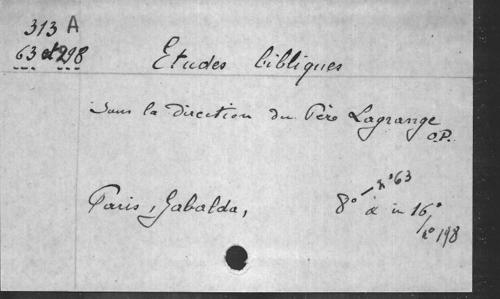 313 A
63 et 298
Etudes bibliques
sous la direction du Père Lagrange
O.P.
Paris, Gabalda,
8° à in 16°
n° 63
n° 198